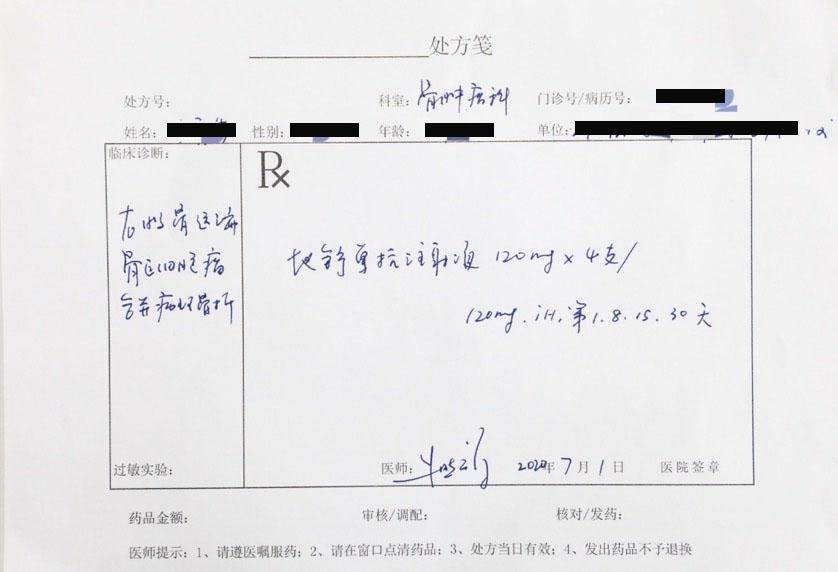 处方笺
处方号: 科室: 骨肿瘤科 门诊号/病历号:
姓名: 性别: 年龄: 单位:
临床诊断:
Rx
骨巨细胞瘤
合并病理骨折
地舒单抗注射液 120mg × 4支/
120mg. iH. 第1.8.15.30天
过敏实验: 医师: 2020年7月1日 医院签章
药品金额: 审核/调配: 核对/发药:
医师提示: 1、请遵医嘱服药; 2、请在窗口点清药品; 3、处方当日有效; 4、发出药品不予退换